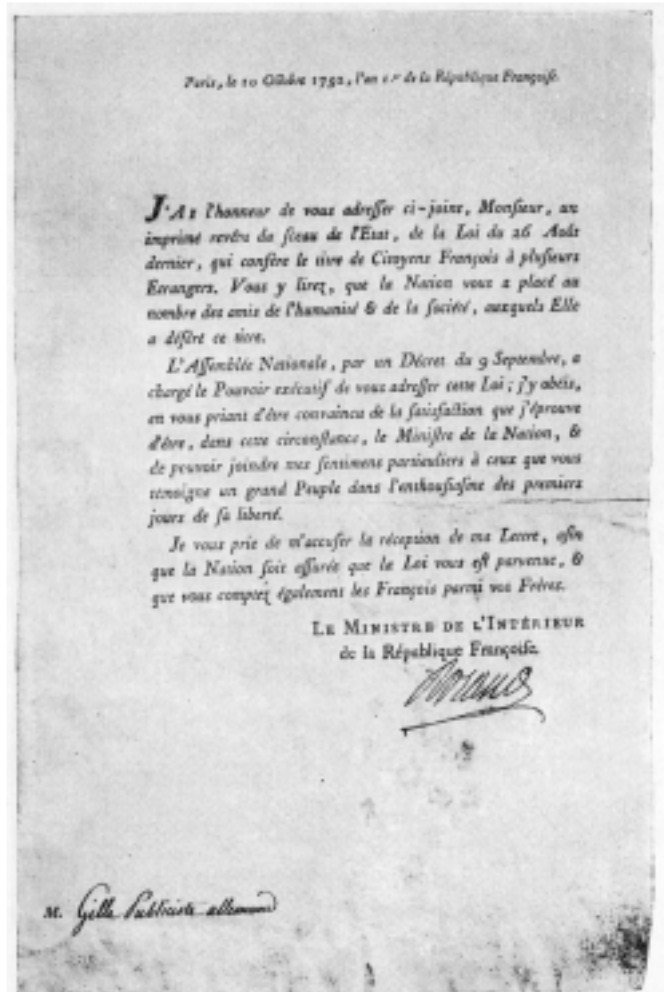 Paris, le 10 Octobre 1792, l'an 1.er de la République Françoise.
J'AI l'honneur de vous adresser ci-joint, Monsieur, un
imprimé revêtu du sceau de l'Etat, de la Loi du 26 Août
dernier, qui confère le titre de Citoyens François à plusieurs
Etrangers. Vous y lirez, que la Nation vous a placé au
nombre des amis de l'humanité & de la société, auxquels Elle
a déféré ce titre.
L'Assemblée Nationale, par un Décret du 9 Septembre, a
chargé le Pouvoir exécutif de vous adresser cette Loi ; j'y obéis,
en vous priant d'être convaincu de la satisfaction que j'éprouve
d'être, dans cette circonstance, le Ministre de la Nation, &
de pouvoir joindre mes sentimens particuliers à ceux que vous
témoigne un grand Peuple dans l'enthousiasme des premiers
jours de sa liberté.
Je vous prie de m'accuser la réception de ma Lettre, afin
que la Nation soit assurée que la Loi vous est parvenue, &
que vous comptez également les François parmi vos Frères.
LE MINISTRE DE L'INTÉRIEUR
de la République Françoise.
Roland
M. Gille Publiciste allemand